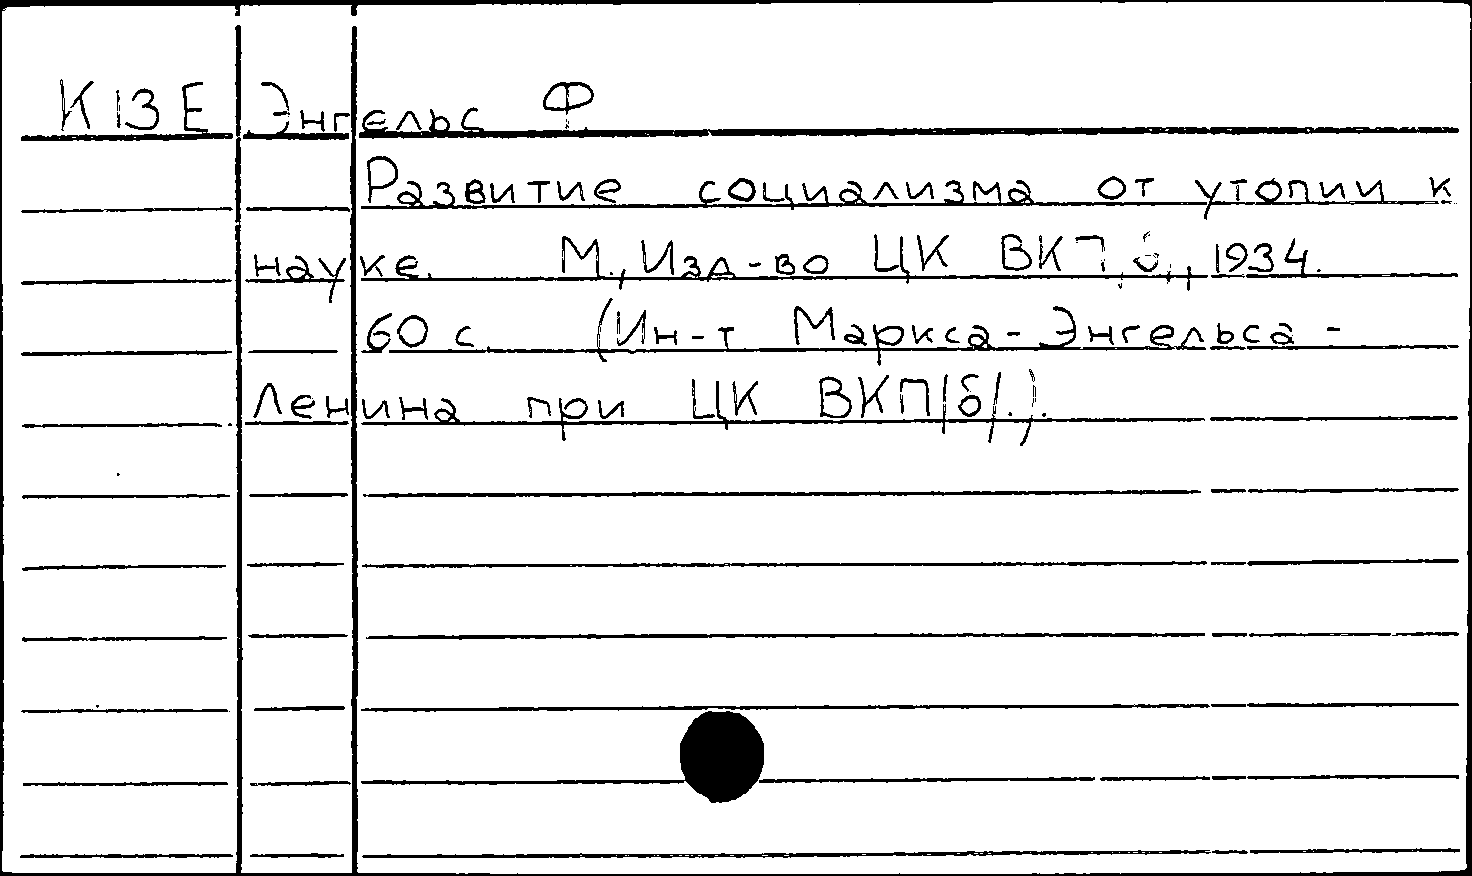 К 13 Е Энгельс Ф.
Развитие социализма от утопии к
науке. М., Изд-во ЦК ВКП/б/, 1934.
60 с. (Ин-т Маркса-Энгельса-
Ленина при ЦК ВКП/б/.).